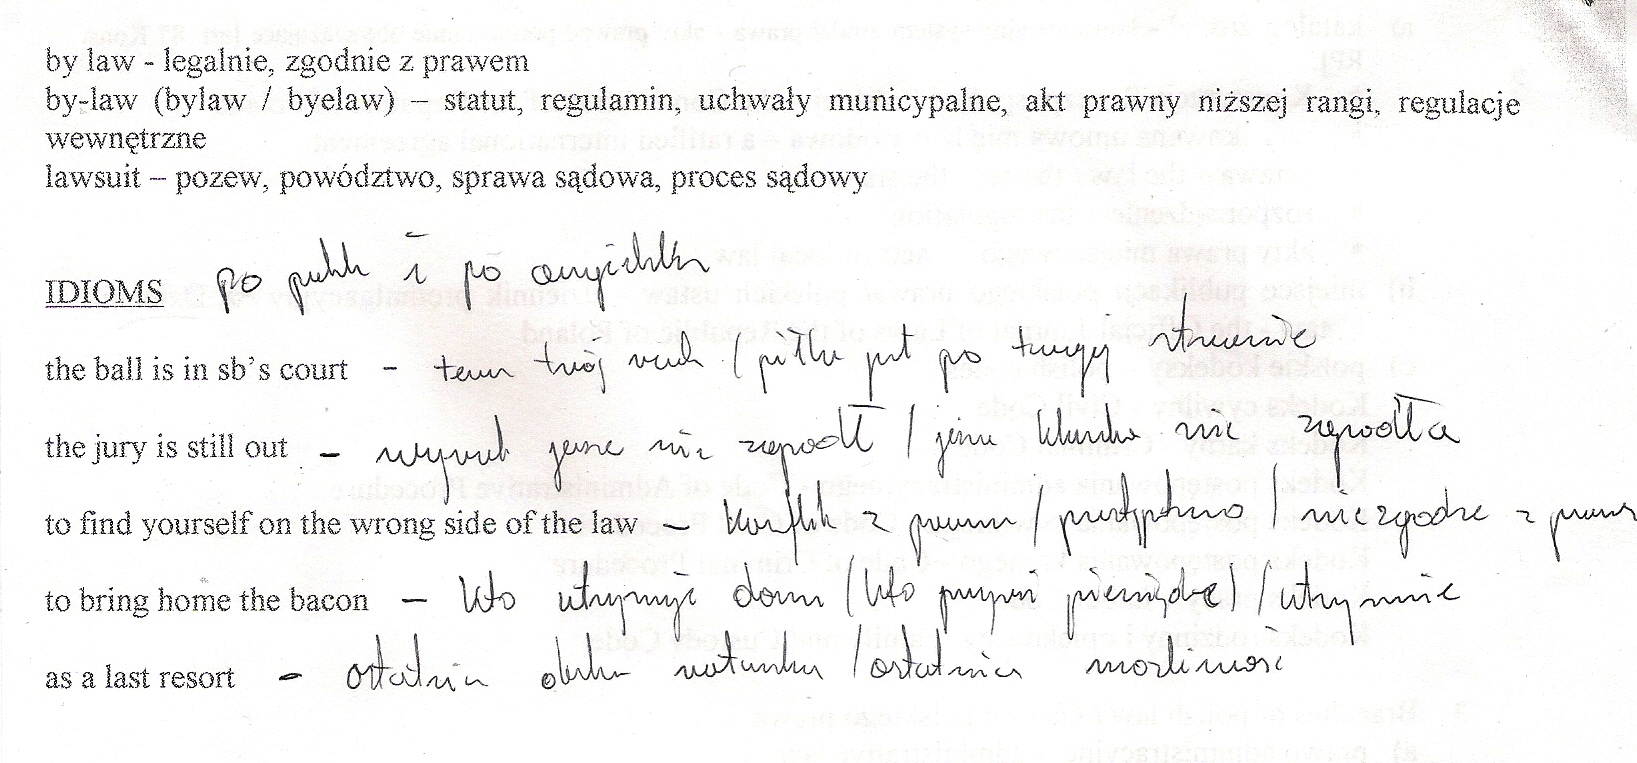 by law - legalnie, zgodnie z prawem
by-law (bylaw / byelaw) – statut, regulamin, uchwały municypalne, akt prawny niższej rangi, regulacje
wewnętrzne
lawsuit – pozew, powództwo, sprawa sądowa, proces sądowy
IDIOMS po polsku i po angielsku
the ball is in sb's court - teraz twój ruch / piłka jest po twojej stronie
the jury is still out – wyrok jeszcze nie zapadł / jeszcze klamka nie zapadła
to find yourself on the wrong side of the law – konflikt z prawem / przestępstwo / niezgodne z prawem
to bring home the bacon – kto utrzymuje dom (kto przynosi pieniądze) / utrzymanie
as a last resort - ostatnia deska ratunku / ostatnia możliwość